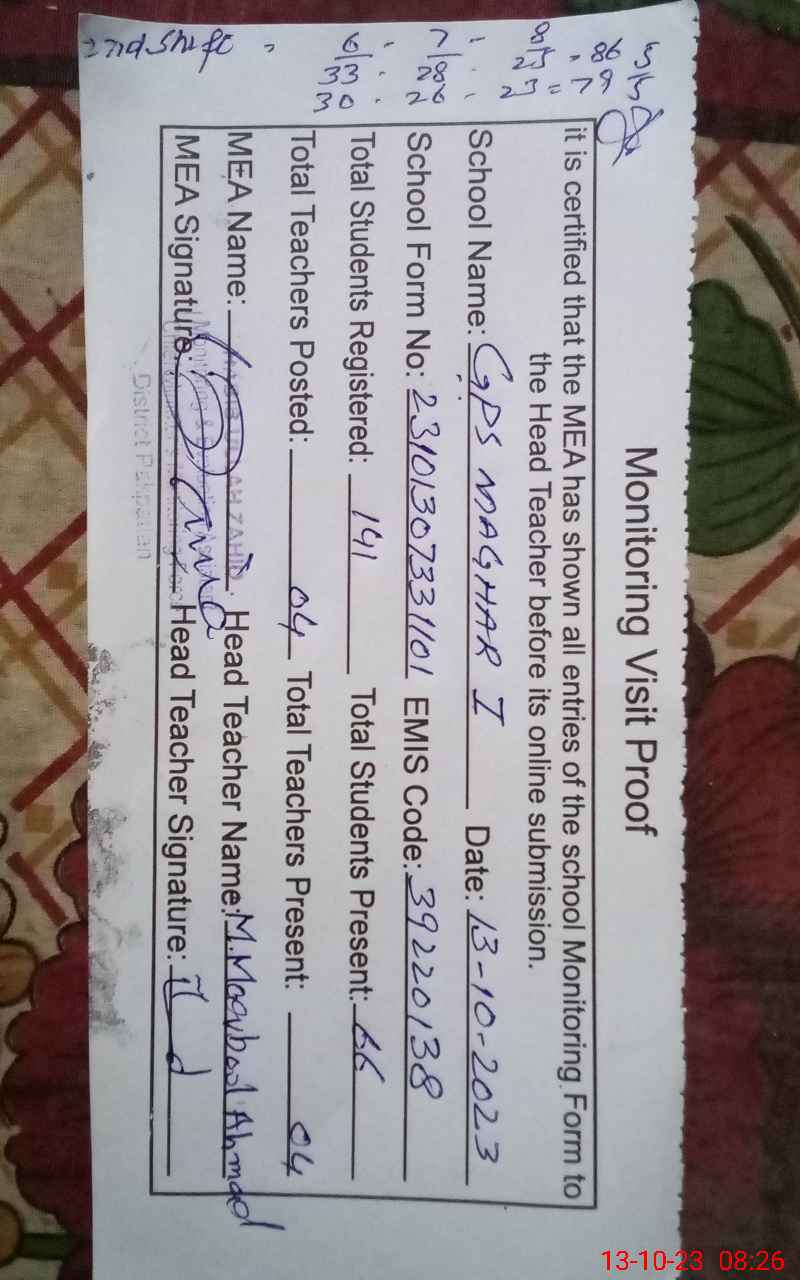 Monitoring Visit Proof
it is certified that the MEA has shown all entries of the school Monitoring Form to
the Head Teacher before its online submission.
School Name: GPS MAGHAR I Date: 13-10-2023
School Form No: 2310130733101 EMIS Code: 39220138
Total Students Registered: 141 Total Students Present: 66
Total Teachers Posted: 04 Total Teachers Present: 04
MEA Name: Head Teacher Name: M. Maqbool Ahmad
MEA Signature: Head Teacher Signature:
District Pakpattan
2nd Shift
13-10-23 08:26